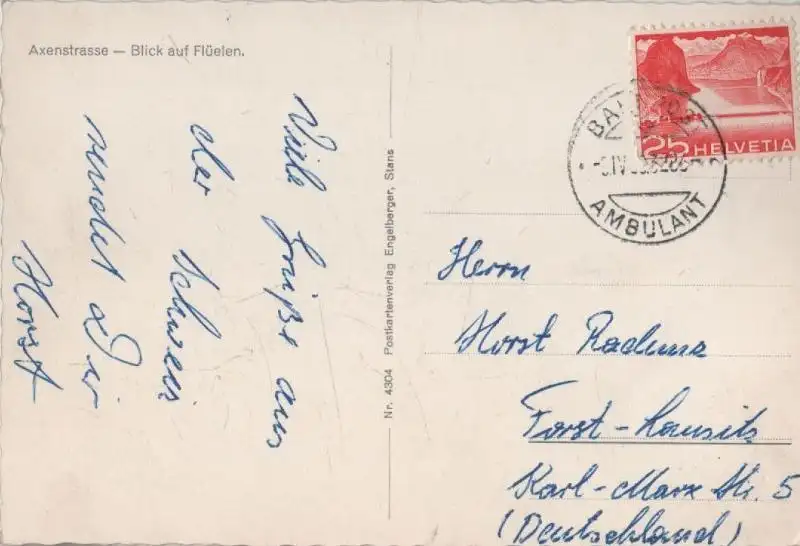 Axenstrasse — Blick auf Flüelen.
Viele Grüße aus
der Schweiz
sendet Dir
Horst
Nr. 4304 Postkartenverlag Engelberger, Stans
25 HELVETIA
AMBULANT
Herrn
Horst Raduna
Forst-Lausitz
Karl-Marx Str. 5
(Deutschland)